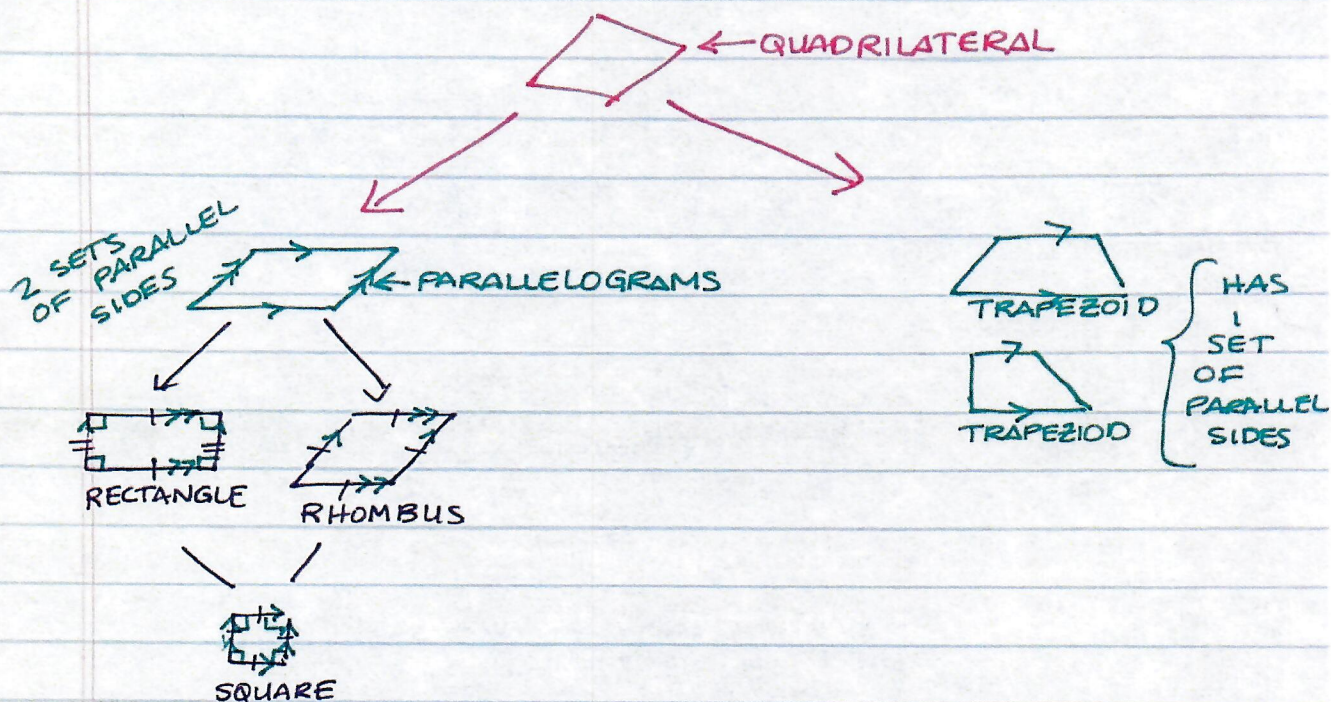 QUADRILATERAL
2 SETS
OF PARALLEL
SIDES
PARALLELOGRAMS
TRAPEZOID
TRAPEZIOD
HAS
1
SET
OF
PARALLEL
SIDES
RECTANGLE
RHOMBUS
SQUARE